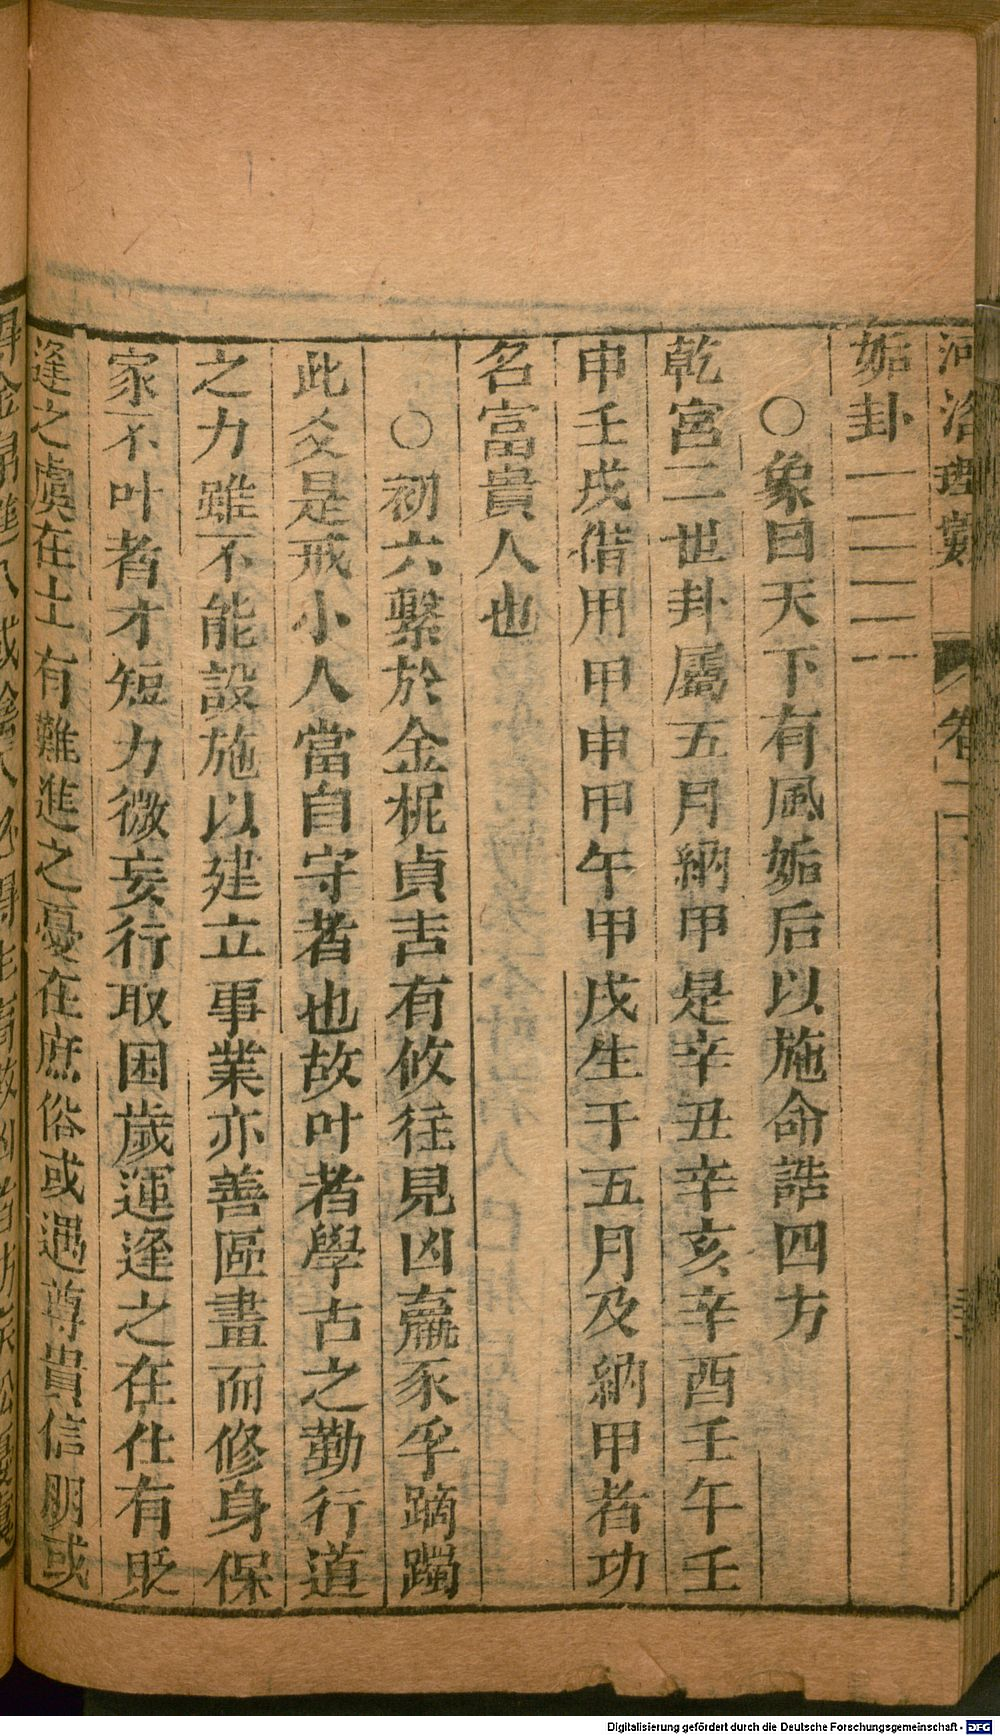 河洛理數 卷二
姤卦
○象曰天下有風姤后以施命誥四方
乾宮二世卦屬五月納甲是辛丑辛亥辛酉壬午壬
申壬戌偕用甲申甲午甲戌生于五月及納甲者功
名富貴人也
○初六繫於金柅貞吉有攸往見凶羸豕孚蹢躅
此爻是戒小人當自守者也故叶者學古之勤行道
之力雖不能設施以建立事業亦善區畫而修身保
家不叶者才短力微妄行取困歲運逢之在仕有貶
逢之虞在士有難進之憂在庶俗或遇尊貴信朋或
Digitalisierung gefördert durch die Deutsche Forschungsgemeinschaft - DFG